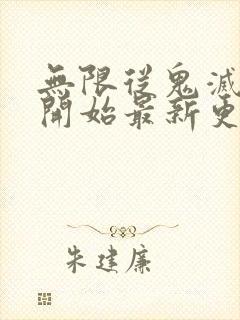 無限從鬼滅
開始最新更
朱建廉